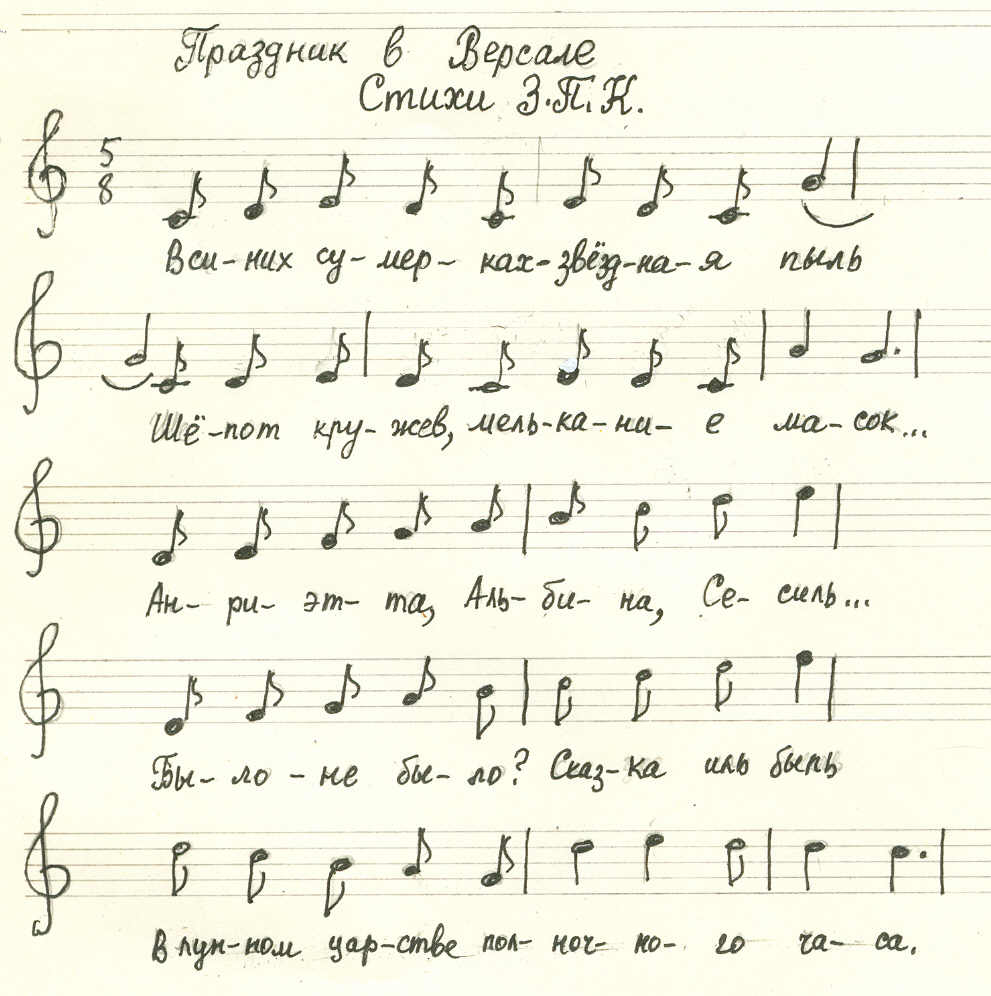 Праздник в Версале
Стихи З.П.К.
5
8
В си-них су-мер-ках-звёзд-на-я пыль
Шё-пот кру-жев, мель-ка-ни-е ма-сок...
Ан-ри-эт-та, Аль-би-на, Се-силь...
Бы-ло-не бы-ло? Сказ-ка иль быль
В лун-ном цар-стве пол-ноч-но-го ча-са.